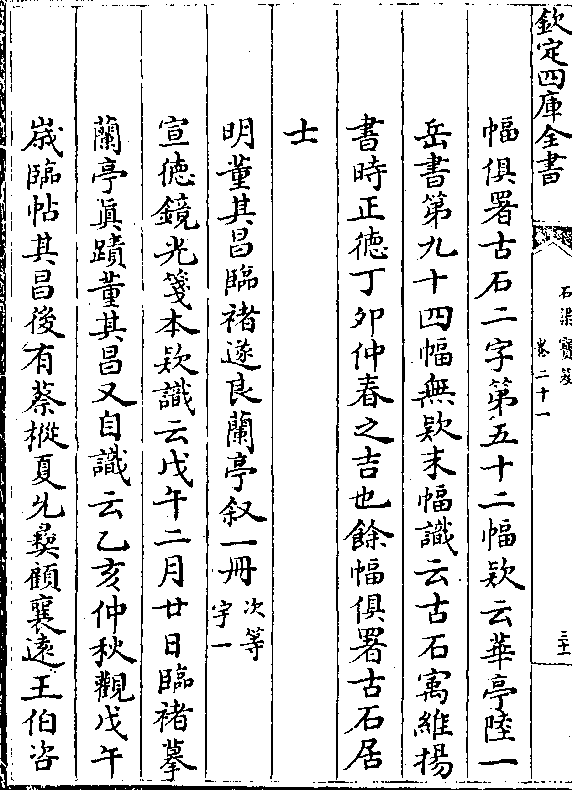 欽定四庫全書
石渠寶笈
卷二十一
三十一
幅俱署古石二字第五十二幅欵云華亭陸一
岳書第九十四幅無欵末幅識云古石寓維揚
書時正德丁夘仲春之吉也餘幅俱署古石居
士
明董其昌臨褚遂良蘭亭叙一冊次等
宇一
宣德鏡光箋本欵識云戊午二月廿日臨褚摹
蘭亭眞蹟董其昌又自識云乙亥仲秋觀戊午
歳臨帖其昌後有蔡樅夏允彝顧襄遠王伯咨